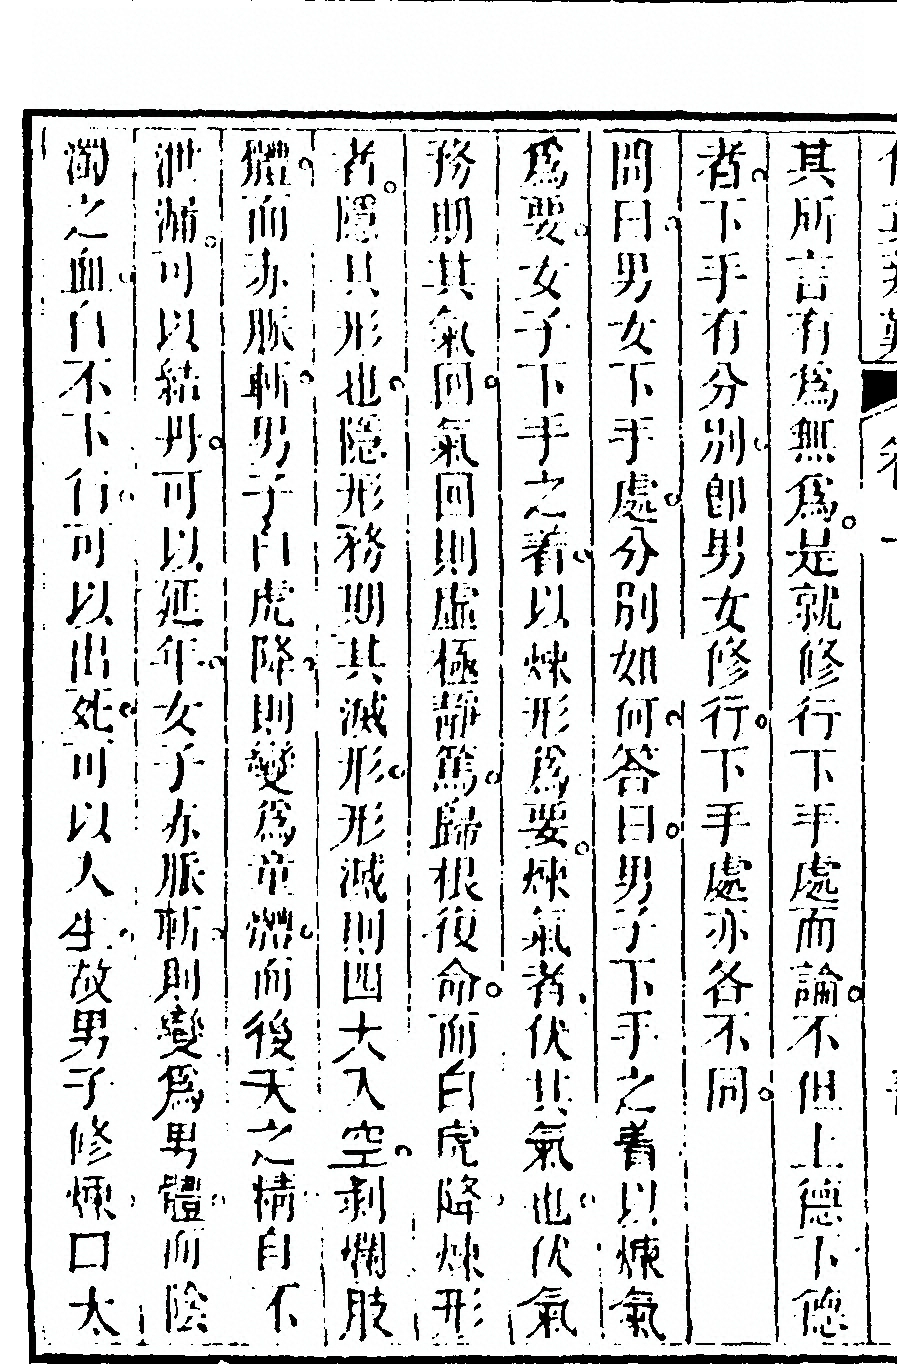 其所言有爲無爲。是就修行下手處而論。不但上德下德
者。下手有分別。卽男女修行。下手處亦各不同。
問曰。男女下手處。分別如何。答曰。男子下手之着以煉氣
爲要。女子下手之着。以煉形爲要。煉氣者、伏其氣也。伏氣
務期其氣回。氣回則虛極靜篤。歸根復命。而白虎降。煉形
者。隱其形也。隱形務期其滅形。形滅則四大入空。剥爛肢
體。而赤脈斬。男子白虎降。則變爲童體。而後天之精自不
泄漏。可以結丹。可以延年。女子赤脈斬。則變爲男體。而陰
濁之血。自不下行。可以出死。可以入生。故男子修煉。曰太